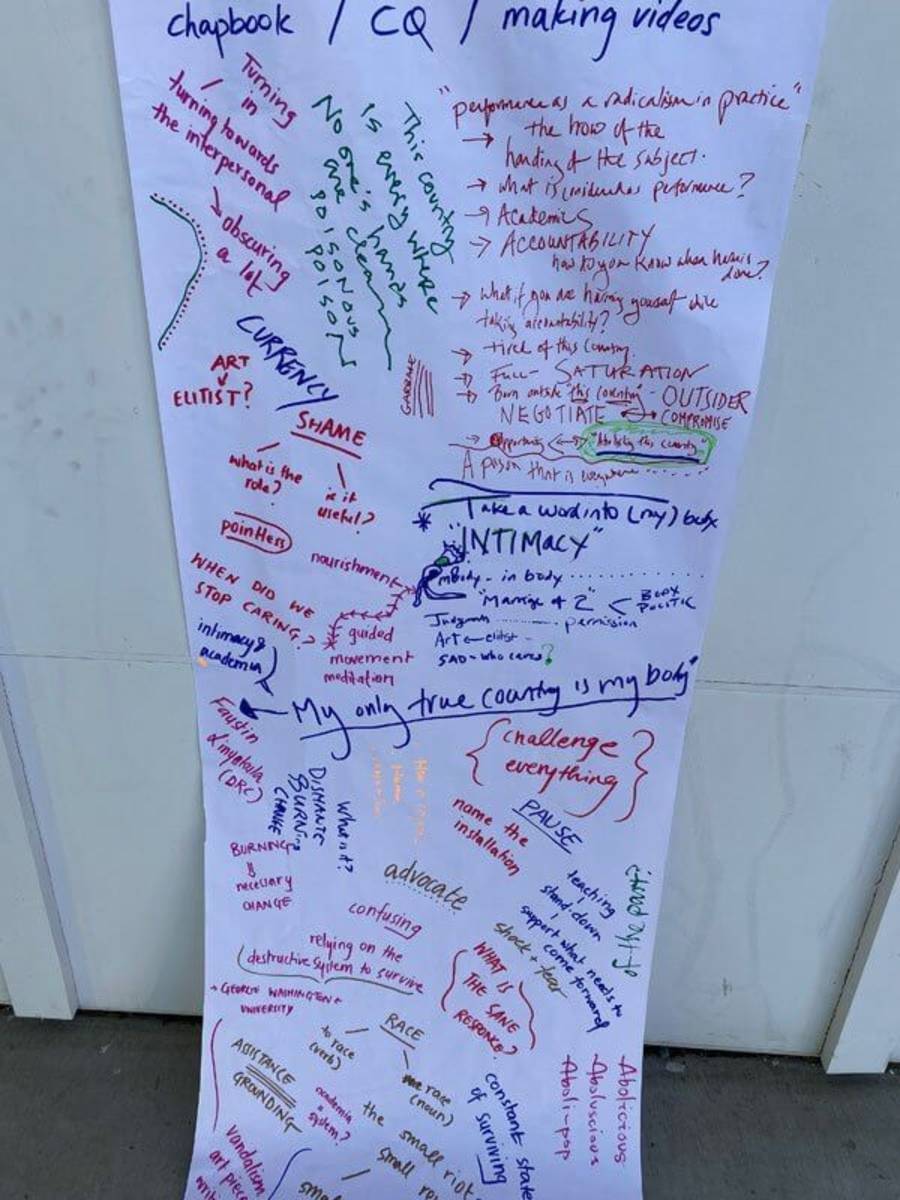 chapbook / CQ / making videos
Turning
in
/
turning towards
the interpersonal
obscuring
a lot
This country
is every where
No one's hands
are clean
poisonous
poison
"performance as a radicalism in practice"
→ the how of the
handing of the subject.
→ what is considered as performance?
→ Academics
→ ACCOUNTABILITY
how do you know when harm is
done?
→ What if you are harming yourself while
taking accountability?
→ tired of this country.
→ Full - SATURATION
→ Born outside "this country" - OUTSIDER
NEGOTIATE ↔ COMPROMISE
→ Opportunity ↔ "this country"
A poison that is everywhere
CURRENCY
ART
↓
ELITIST?
GARBAGE
SHAME
what is the
role?
is it
useful?
pointless
* Take a word into (my) body
"INTIMACY"
embody - in body
"Marriage of 2" < BODY
POLITIC
permission
Art - elitist -
SAD - who cares?
nourishment
guided
movement
meditation
WHEN DID WE
STOP CARING?
intimacy &
academia
← My only true country is my body"
Faustin
Linyekula
(DRC)
{challenge
everything}
What is it?
DISMANTLE
BURNING
CHANGE
name the
installation
PAUSE
BURNING
&
necessary
CHANGE
advocate
teaching
stand-down
support what needs to
come forward
confusing
shock + fear
relying on the
destructive system to survive
{WHAT IS
THE SANE
RESPONSE?}
→ GEORGE WASHINGTON
UNIVERSITY
RACE
to race
(verb)
race
(noun)
ASSISTANCE
GROUNDING
academia
system?
constant state
of surviving
Abolicious
Aboluscious
Aboli-pop
the small riot
small
Vandalism
art piece